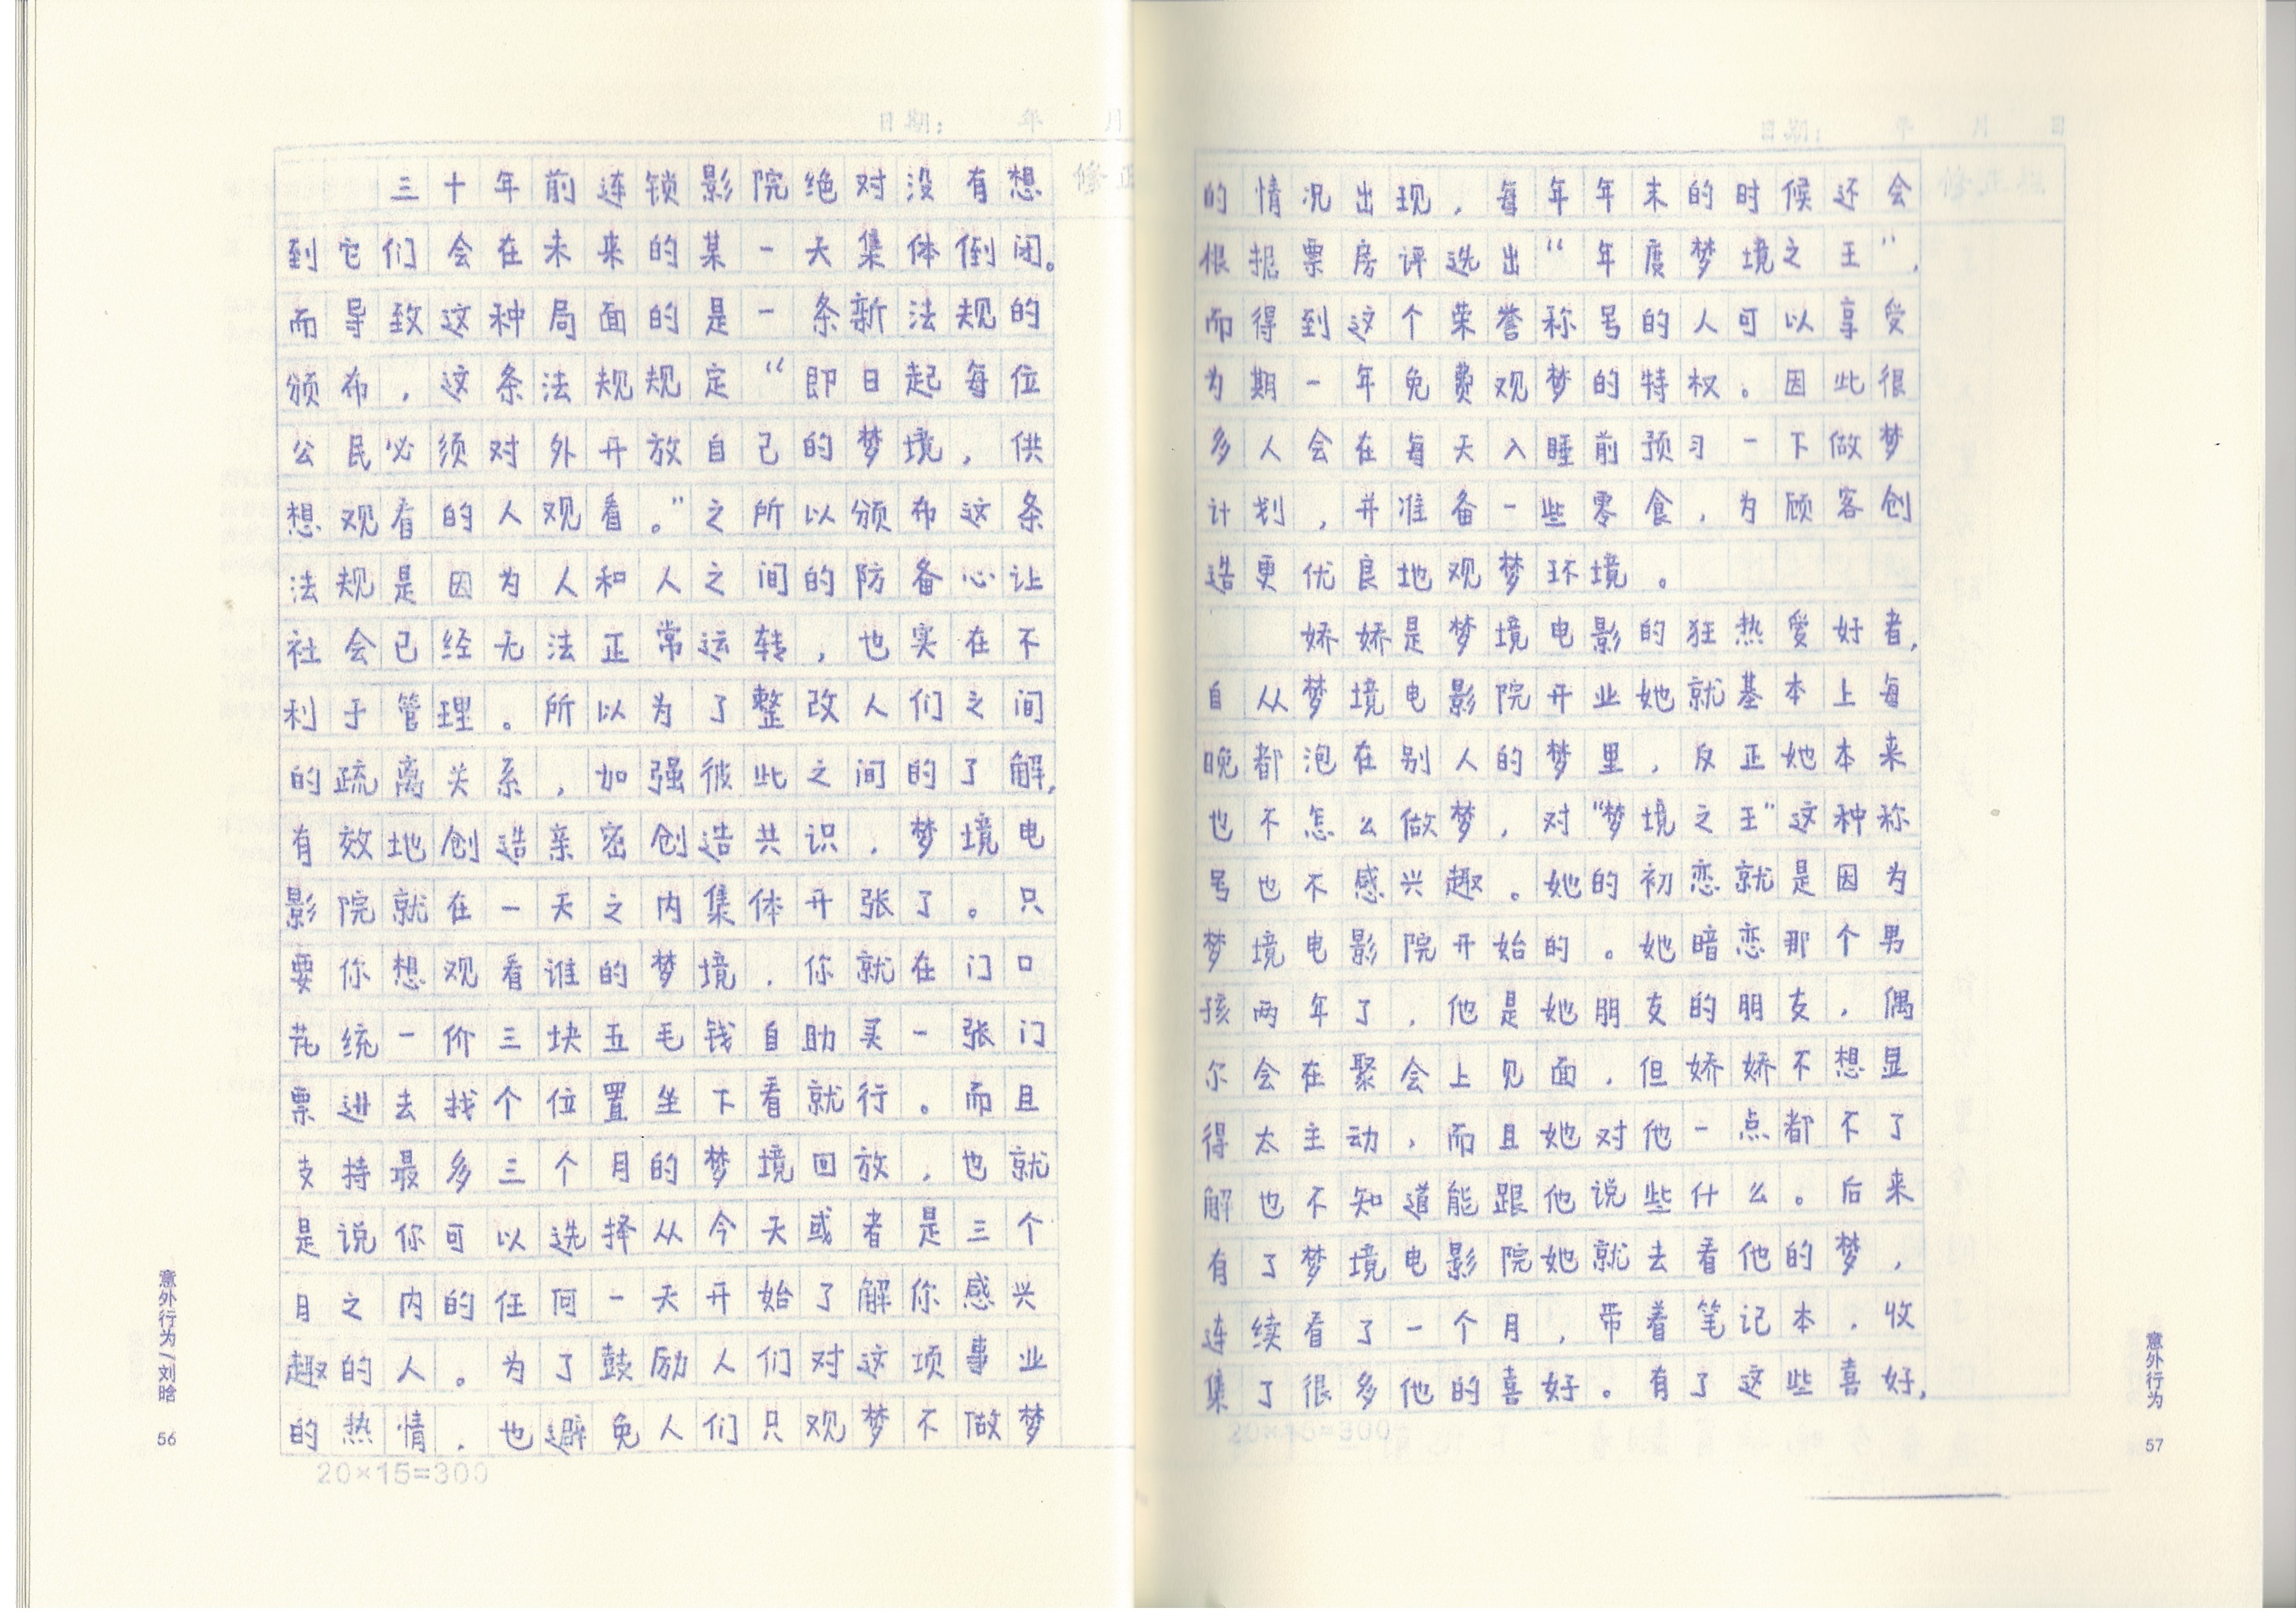 日期: 年 月
三十年前连锁影院绝对没有想
到它们会在未来的某一天集体倒闭。
而导致这种局面的是一条新法规的
颁布，这条法规规定“即日起每位
公民必须对外开放自己的梦境，供
想观看的人观看。”之所以颁布这条
法规是因为人和人之间的防备心让
社会已经无法正常运转，也实在不
利于管理。所以为了整改人们之间
的疏离关系，加强彼此之间的了解，
有效地创造亲密创造共识，梦境电
影院就在一天之内集体开张了。只
要你想观看谁的梦境，你就在门口
花统一价三块五毛钱自助买一张门
票进去找个位置坐下看就行。而且
支持最多三个月的梦境回放，也就
是说你可以选择从今天或者是三个
月之内的任何一天开始了解你感兴
趣的人。为了鼓励人们对这项事业
的热情，也避免人们只观梦不做梦
20×15=300
意外行为/刘晗 56
日期: 年 月 日
的情况出现，每年年末的时候还会
根据票房评选出“年度梦境之王”，
而得到这个荣誉称号的人可以享受
为期一年免费观梦的特权。因此很
多人会在每天入睡前预习一下做梦
计划，并准备一些零食，为顾客创
造更优良地观梦环境。
娇娇是梦境电影的狂热爱好者，
自从梦境电影院开业她就基本上每
晚都泡在别人的梦里，反正她本来
也不怎么做梦，对“梦境之王”这种称
号也不感兴趣。她的初恋就是因为
梦境电影院开始的。她暗恋那个男
孩两年了，他是她朋友的朋友，偶
尔会在聚会上见面，但娇娇不想显
得太主动，而且她对他一点都不了
解也不知道能跟他说些什么。后来
有了梦境电影院她就去看他的梦，
连续看了一个月，带着笔记本，收
集了很多他的喜好。有了这些喜好，
20×15=300
意外行为 57